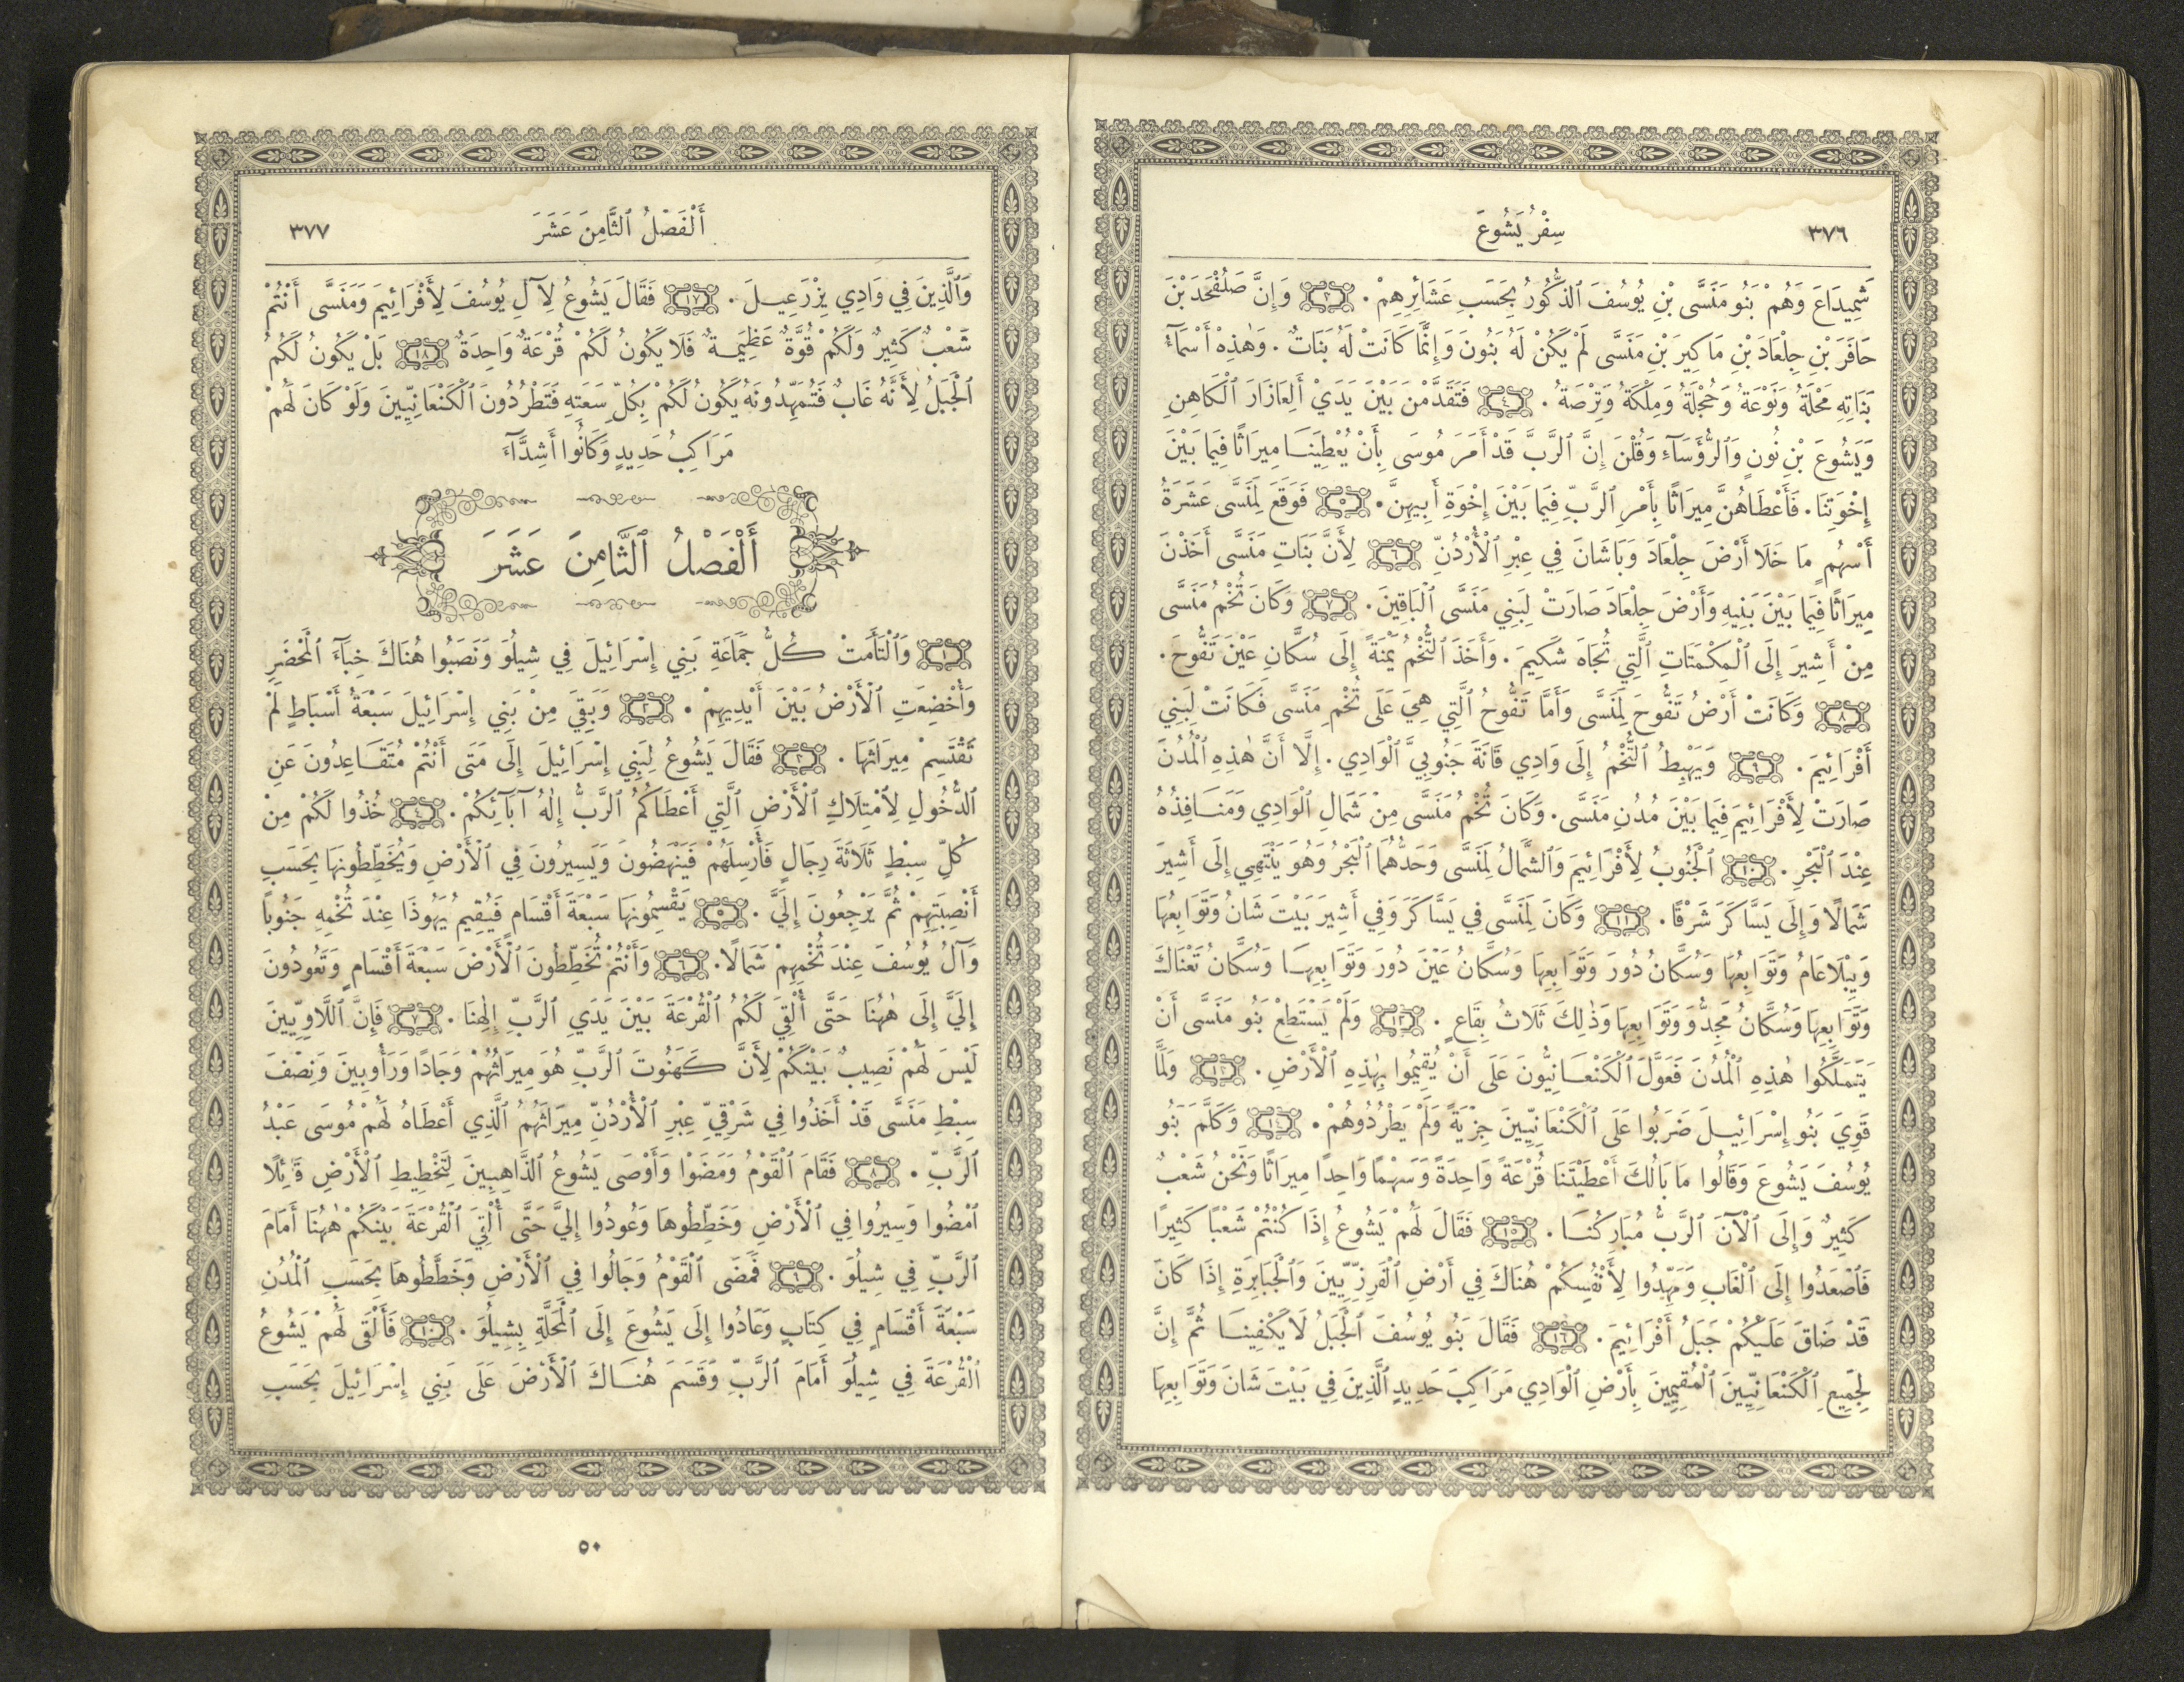 ٣٧٦
سِفْرُ يَشُوعَ
شَمِيدَاعَ وَهُمْ بَنُو مَنَسَّى بْنِ يُوسُفَ ٱلذُّكُورُ بِحَسَبِ عَشَائِرِهِمْ . ٣ وَإِنَّ صَلُفْحَدَ بْنَ
حَافَرَ بْنِ جِلْعَادَ بْنِ مَاكِيرَ بْنِ مَنَسَّى لَمْ يَكُنْ لَهُ بَنُونَ وَإِنَّمَا كَانَتْ لَهُ بَنَاتٌ . وَهٰذِهْ أَسْمَآءُ
بَنَاتِهِ مَحْلَةُ وَنَوْعَةُ وَحُجْلَةُ وَمِلْكَةُ وَتِرْصَةُ . ٤ فَتَقَدَّمْنَ بَيْنَ يَدَيْ أَلِعَازَارَ ٱلْكَاهِنِ
وَيَشُوعَ بْنِ نُونٍ وَٱلرُّؤَسَآءِ وَقُلْنَ إِنَّ ٱلرَّبَّ قَدْ أَمَرَ مُوسَى بِأَنْ يُعْطِيَنَا مِيرَاثًا فِيمَا بَيْنَ
إِخْوَتِنَا . فَأَعْطَاهُنَّ مِيرَاثًا بِأَمْرِ ٱلرَّبِّ فِيمَا بَيْنَ إِخْوَةِ أَبِيهِنَّ . ٥ فَوَقَعَ لِمَنَسَّى عَشَرَةُ
أَسْهُمٍ مَا خَلَا أَرْضَ جِلْعَادَ وَبَاشَانَ فِي عِبْرِ ٱلْأُرْدُنِّ ٦ لِأَنَّ بَنَاتِ مَنَسَّى أَخَذْنَ
مِيرَاثًا فِيمَا بَيْنَ بَنِيهِ وَأَرْضَ جِلْعَادَ صَارَتْ لِبَنِي مَنَسَّى ٱلْبَاقِينَ . ٧ وَكَانَ تُخْمُ مَنَسَّى
مِنْ أَشِيرَ إِلَى ٱلْمِكْمَتَاتِ ٱلَّتِي تُجَاهَ شَكِيمَ . وَأَخَذَ ٱلتُّخْمُ يَمْنَةً إِلَى سُكَّانِ عَيْنَ تَفُّوحَ .
٨ وَكَانَتْ أَرْضُ تَفُّوحَ لِمَنَسَّى وَأَمَّا تَفُّوحُ ٱلَّتِي هِيَ عَلَى تُخْمِ مَنَسَّى فَكَانَتْ لِبَنِي
أَفْرَائِيمَ . ٩ وَيَهْبِطُ ٱلتُّخْمُ إِلَى وَادِي قَانَةَ جَنُوبِيَّ ٱلْوَادِي . إِلَّا أَنَّ هٰذِهِ ٱلْمُدُنَ
صَارَتْ لِأَفْرَائِيمَ فِيمَا بَيْنَ مُدُنِ مَنَسَّى . وَكَانَ تُخْمُ مَنَسَّى مِنْ شَمَالِ ٱلْوَادِي وَمَنَافِذُهُ
عِنْدَ ٱلْبَحْرِ . ١٠ ٱلْجَنُوبُ لِأَفْرَائِيمَ وَٱلشَّمَالُ لِمَنَسَّى وَحَدُّهُمَا ٱلْبَحْرُ وَهُوَ يَنْتَهِي إِلَى أَشِيرَ
شَمَالًا وَإِلَى يَسَّاكَرَ شَرْقًا . ١١ وَكَانَ لِمَنَسَّى فِي يَسَّاكَرَ وَفِي أَشِيرَ بَيْتَ شَانُ وَتَوَابِعُهَا
وَيِبْلَاعَامُ وَتَوَابِعُهَا وَسُكَّانُ دُورَ وَتَوَابِعِهَا وَسُكَّانُ عَيْنَ دُورَ وَتَوَابِعِهَا وَسُكَّانُ تَعْنَاكَ
وَتَوَابِعِهَا وَسُكَّانُ مَجِدُّو وَتَوَابِعِهَا وَذٰلِكَ ثَلَاثُ بِقَاعٍ . ١٢ وَلَمْ يَسْتَطِعْ بَنُو مَنَسَّى أَنْ
يَتَمَلَّكُوا هٰذِهِ ٱلْمُدُنَ فَعَوَّلَ ٱلْكَنْعَانِيُّونَ عَلَى أَنْ يُقِيمُوا بِهٰذِهِ ٱلْأَرْضِ . ١٣ وَلَمَّا
قَوِيَ بَنُو إِسْرَائِيلَ ضَرَبُوا عَلَى ٱلْكَنْعَانِيِّينَ جِزْيَةً وَلَمْ يَطْرُدُوهُمْ . ١٤ وَكَلَّمَ بَنُو
يُوسُفَ يَشُوعَ وَقَالُوا مَا بَالُكَ أَعْطَيْتَنَا قُرْعَةً وَاحِدَةً وَسَهْمًا وَاحِدًا مِيرَاثًا وَنَحْنُ شَعْبٌ
كَثِيرٌ وَإِلَى ٱلْآنَ ٱلرَّبُّ مُبَارِكُنَا . ١٥ فَقَالَ لَهُمْ يَشُوعُ إِذَا كُنْتُمْ شَعْبًا كَثِيرًا
فَٱصْعَدُوا إِلَى ٱلْغَابِ وَمَهِّدُوا لِأَنْفُسِكُمْ هُنَاكَ فِي أَرْضِ ٱلْفَرِزِّيِّينَ وَٱلْجَبَابِرَةِ إِذَا كَانَ
قَدْ ضَاقَ عَلَيْكُمْ جَبَلُ أَفْرَائِيمَ . ١٦ فَقَالَ بَنُو يُوسُفَ ٱلْجَبَلُ لَا يَكْفِينَا ثُمَّ إِنَّ
لِجَمِيعِ ٱلْكَنْعَانِيِّينَ ٱلْمُقِيمِينَ بِأَرْضِ ٱلْوَادِي مَرَاكِبَ حَدِيدٍ ٱلَّذِينَ فِي بَيْتَ شَانَ وَتَوَابِعِهَا
أَلْفَصْلُ ٱلثَّامِنَ عَشَرَ
٣٧٧
وَٱلَّذِينَ فِي وَادِي يِزْرَعِيلَ . ١٧ فَقَالَ يَشُوعُ لِآلِ يُوسُفَ لِأَفْرَائِيمَ وَمَنَسَّى أَنْتُمْ
شَعْبٌ كَثِيرٌ وَلَكُمْ قُوَّةٌ عَظِيمَةٌ فَلَا يَكُونُ لَكُمْ قُرْعَةٌ وَاحِدَةٌ ١٨ بَلْ يَكُونُ لَكُمُ
ٱلْجَبَلُ لِأَنَّهُ غَابٌ فَتُمَهِّدُونَهُ يَكُونُ لَكُمْ بِكُلِّ سَعَتِهِ فَتَطْرُدُونَ ٱلْكَنْعَانِيِّينَ وَلَوْ كَانَ لَهُمْ
مَرَاكِبُ حَدِيدٍ وَكَانُوا أَشِدَّآءَ
أَلْفَصْلُ ٱلثَّامِنَ عَشَرَ
١ وَٱلْتَأَمَتْ كُلُّ جَمَاعَةِ بَنِي إِسْرَائِيلَ فِي شِيلُوَ وَنَصَبُوا هُنَاكَ خِبَآءَ ٱلْمَحْضَرِ
وَأُخْضِعَتِ ٱلْأَرْضُ بَيْنَ أَيْدِيهِمْ . ٢ وَبَقِيَ مِنْ بَنِي إِسْرَائِيلَ سَبْعَةُ أَسْبَاطٍ لَمْ
تَقْتَسِمْ مِيرَاثَهَا . ٣ فَقَالَ يَشُوعُ لِبَنِي إِسْرَائِيلَ إِلَى مَتَى أَنْتُمْ مُتَقَاعِدُونَ عَنِ
ٱلدُّخُولِ لِٱمْتِلَاكِ ٱلْأَرْضِ ٱلَّتِي أَعْطَاكُمُ ٱلرَّبُّ إِلٰهُ آبَآئِكُمْ . ٤ خُذُوا لَكُمْ مِنْ
كُلِّ سِبْطٍ ثَلَاثَةَ رِجَالٍ فَأُرْسِلَهُمْ فَيَنْهَضُونَ وَيَسِيرُونَ فِي ٱلْأَرْضِ وَيُخَطِّطُونَهَا بِحَسَبِ
أَنْصِبَتِهِمْ ثُمَّ يَرْجِعُونَ إِلَيَّ . ٥ يَقْسِمُونَهَا سَبْعَةَ أَقْسَامٍ فَيُقِيمُ يَهُوذَا عِنْدَ تُخْمِهِ جَنُوبًا
وَآلُ يُوسُفَ عِنْدَ تُخْمِهِمْ شَمَالًا . ٦ وَأَنْتُمْ تُخَطِّطُونَ ٱلْأَرْضَ سَبْعَةَ أَقْسَامٍ وَتَعُودُونَ
إِلَيَّ إِلَى هٰهُنَا حَتَّى أُلْقِيَ لَكُمُ ٱلْقُرْعَةَ بَيْنَ يَدَيِ ٱلرَّبِّ إِلٰهِنَا . ٧ فَإِنَّ ٱللَّاوِيِّينَ
لَيْسَ لَهُمْ نَصِيبٌ بَيْنَكُمْ لِأَنَّ كَهَنُوتَ ٱلرَّبِّ هُوَ مِيرَاثُهُمْ وَجَادًا وَرَأُوبِينَ وَنِصْفَ
سِبْطِ مَنَسَّى قَدْ أَخَذُوا فِي شَرْقِيِّ عِبْرِ ٱلْأُرْدُنِّ مِيرَاثَهُمُ ٱلَّذِي أَعْطَاهُ لَهُمْ مُوسَى عَبْدُ
ٱلرَّبِّ . ٨ فَقَامَ ٱلْقَوْمُ وَمَضَوْا وَأَوْصَى يَشُوعُ ٱلذَّاهِبِينَ لِتَخْطِيطِ ٱلْأَرْضِ قَائِلًا
ٱمْضُوا وَسِيرُوا فِي ٱلْأَرْضِ وَخَطِّطُوهَا وَعُودُوا إِلَيَّ حَتَّى أُلْقِيَ ٱلْقُرْعَةَ بَيْنَكُمْ هٰهُنَا أَمَامَ
ٱلرَّبِّ فِي شِيلُوَ . ٩ فَمَضَى ٱلْقَوْمُ وَجَالُوا فِي ٱلْأَرْضِ وَخَطَّطُوهَا بِحَسَبِ ٱلْمُدُنِ
سَبْعَةَ أَقْسَامٍ فِي كِتَابٍ وَعَادُوا إِلَى يَشُوعَ إِلَى ٱلْمَحَلَّةِ بِشِيلُوَ . ١٠ فَأَلْقَى لَهُمْ يَشُوعُ
ٱلْقُرْعَةَ فِي شِيلُوَ أَمَامَ ٱلرَّبِّ وَقَسَمَ هُنَاكَ ٱلْأَرْضَ عَلَى بَنِي إِسْرَائِيلَ بِحَسَبِ
٥٠